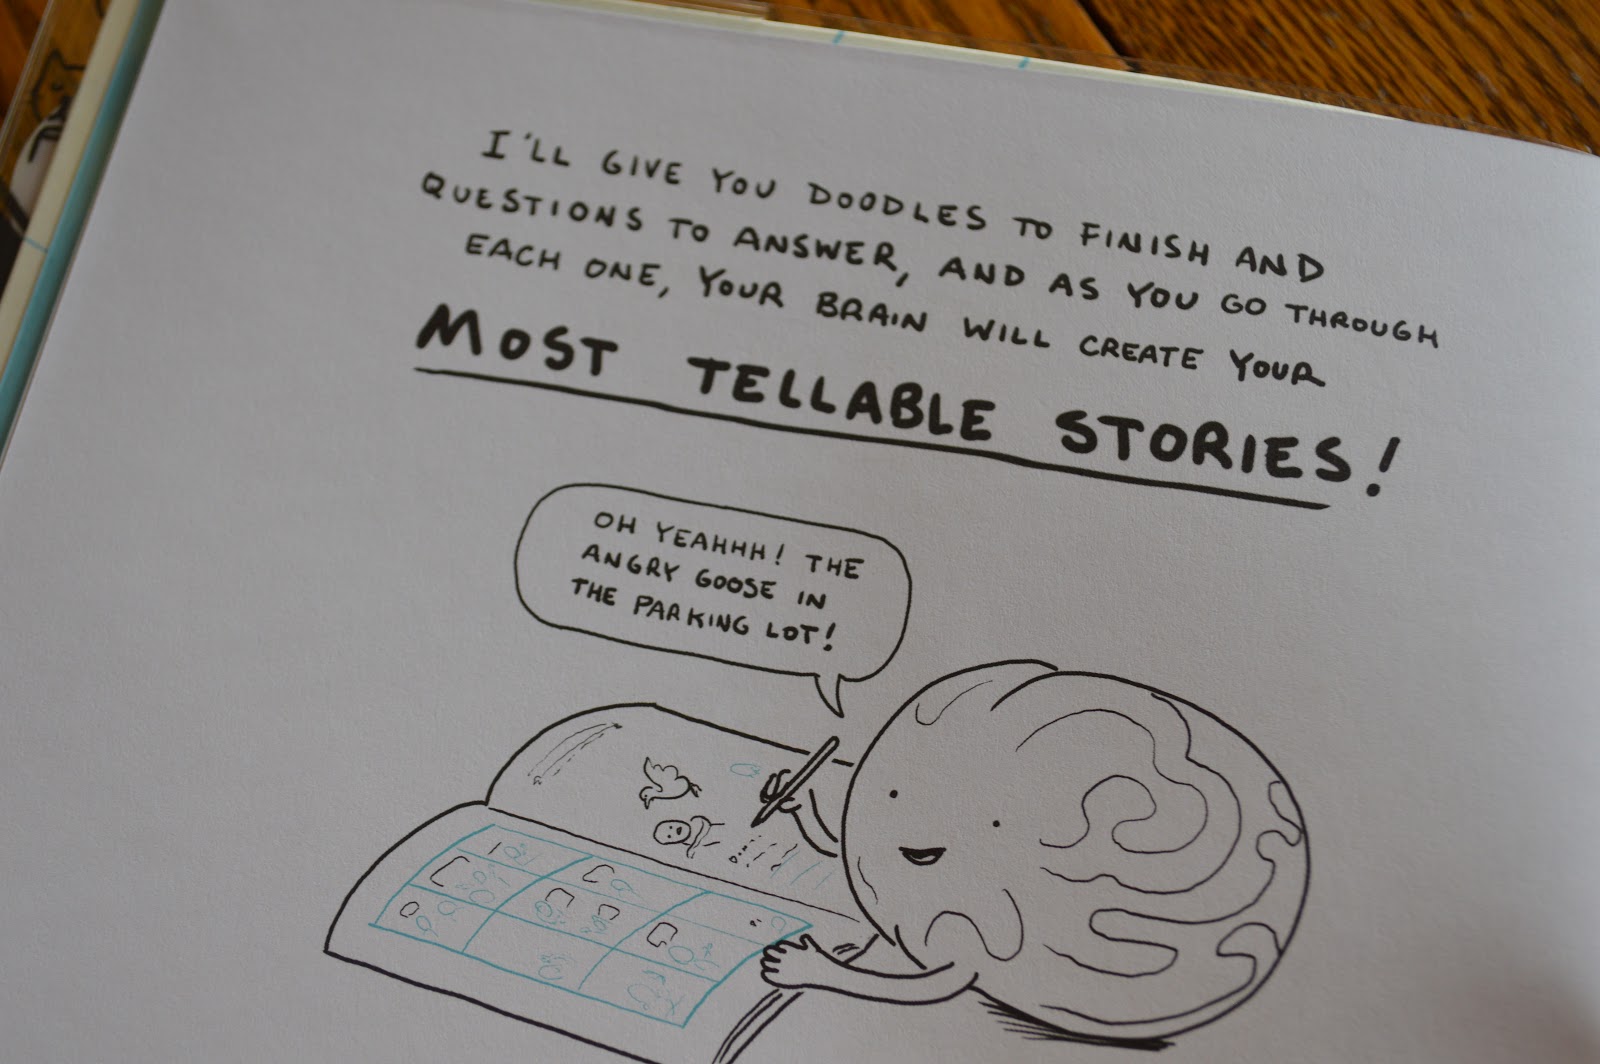 I'LL GIVE YOU DOODLES TO FINISH AND
QUESTIONS TO ANSWER, AND AS YOU GO THROUGH
EACH ONE, YOUR BRAIN WILL CREATE YOUR
MOST TELLABLE STORIES!
OH YEAHHH! THE
ANGRY GOOSE IN
THE PARKING LOT!